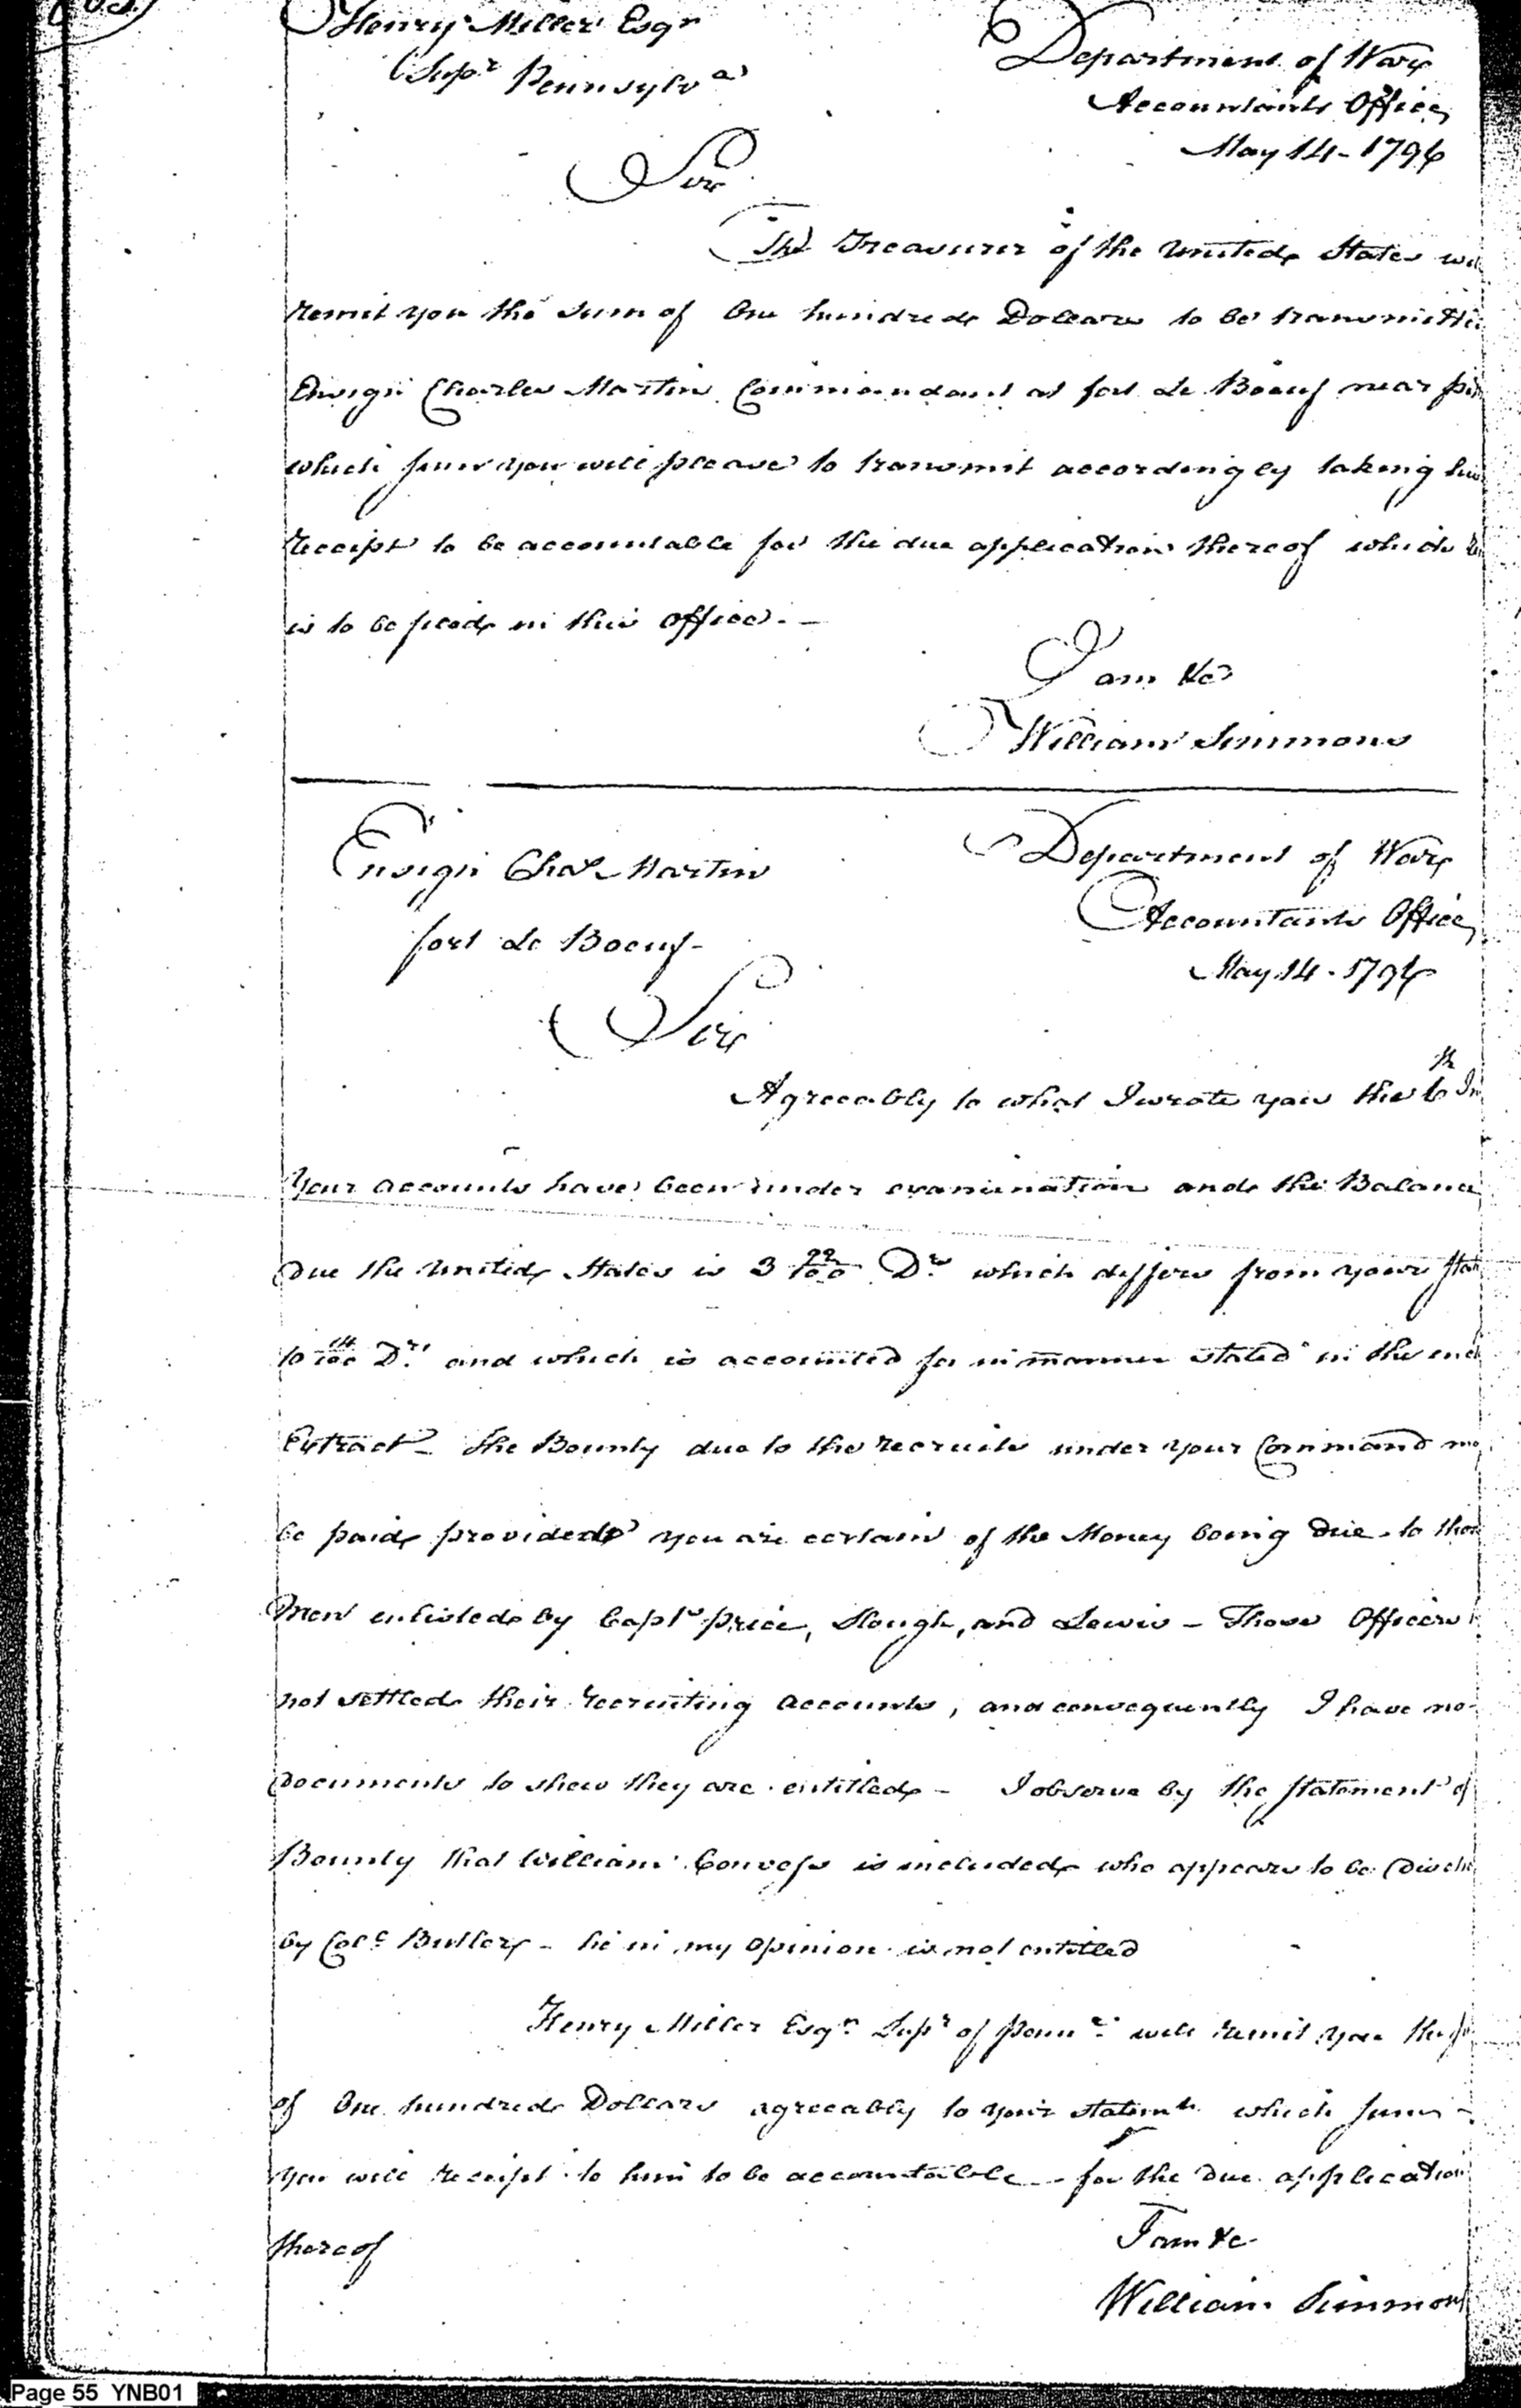 Henry Miller Esqr
Supr Pennsylva
Department of War
Accountants Office
May 14 - 1796
Sir
The Treasurer of the United States
remit you the sum of One hundred Dollars to be
Ensign Charles Martin Commandant at fort Le Boeuf near
which sum you will please to transmit accordingly taking his
receipt to be accountable for the due application thereof which
is to be filed in this Office. -
I am &c
William Simmons
Ensign Chas Martin
fort Le Boeuf -
Department of War
Accountants Office
May 14 - 1796
Sir
Agreeably to what I wrote you the 6th
Your accounts have been under examination and the Balance
Due the United States is 3 22/100 Drs which differs from your
14/100 Drs and which is accounted for in manner stated in the
Extract - The Bounty due to the recruits under your Command
be paid provided you are certain of the Money being due to
Men enlisted by Capts Price, Slough, and Lewis - Those Officers
not settled their recruiting accounts, and consequently I have no
Documents to shew they are entitled - I observe by the statement of
Bounty that William is included who appears to be
by Colo Butler - he in my opinion is not entitled
Henry Miller Esqr Supr of Penna will remit you the
of One hundred Dollars agreeably to your statemt which sum -
you will receipt to him to be accountable - for the Due application
thereof
I am &c
William Simmons
Page 55 YNB01